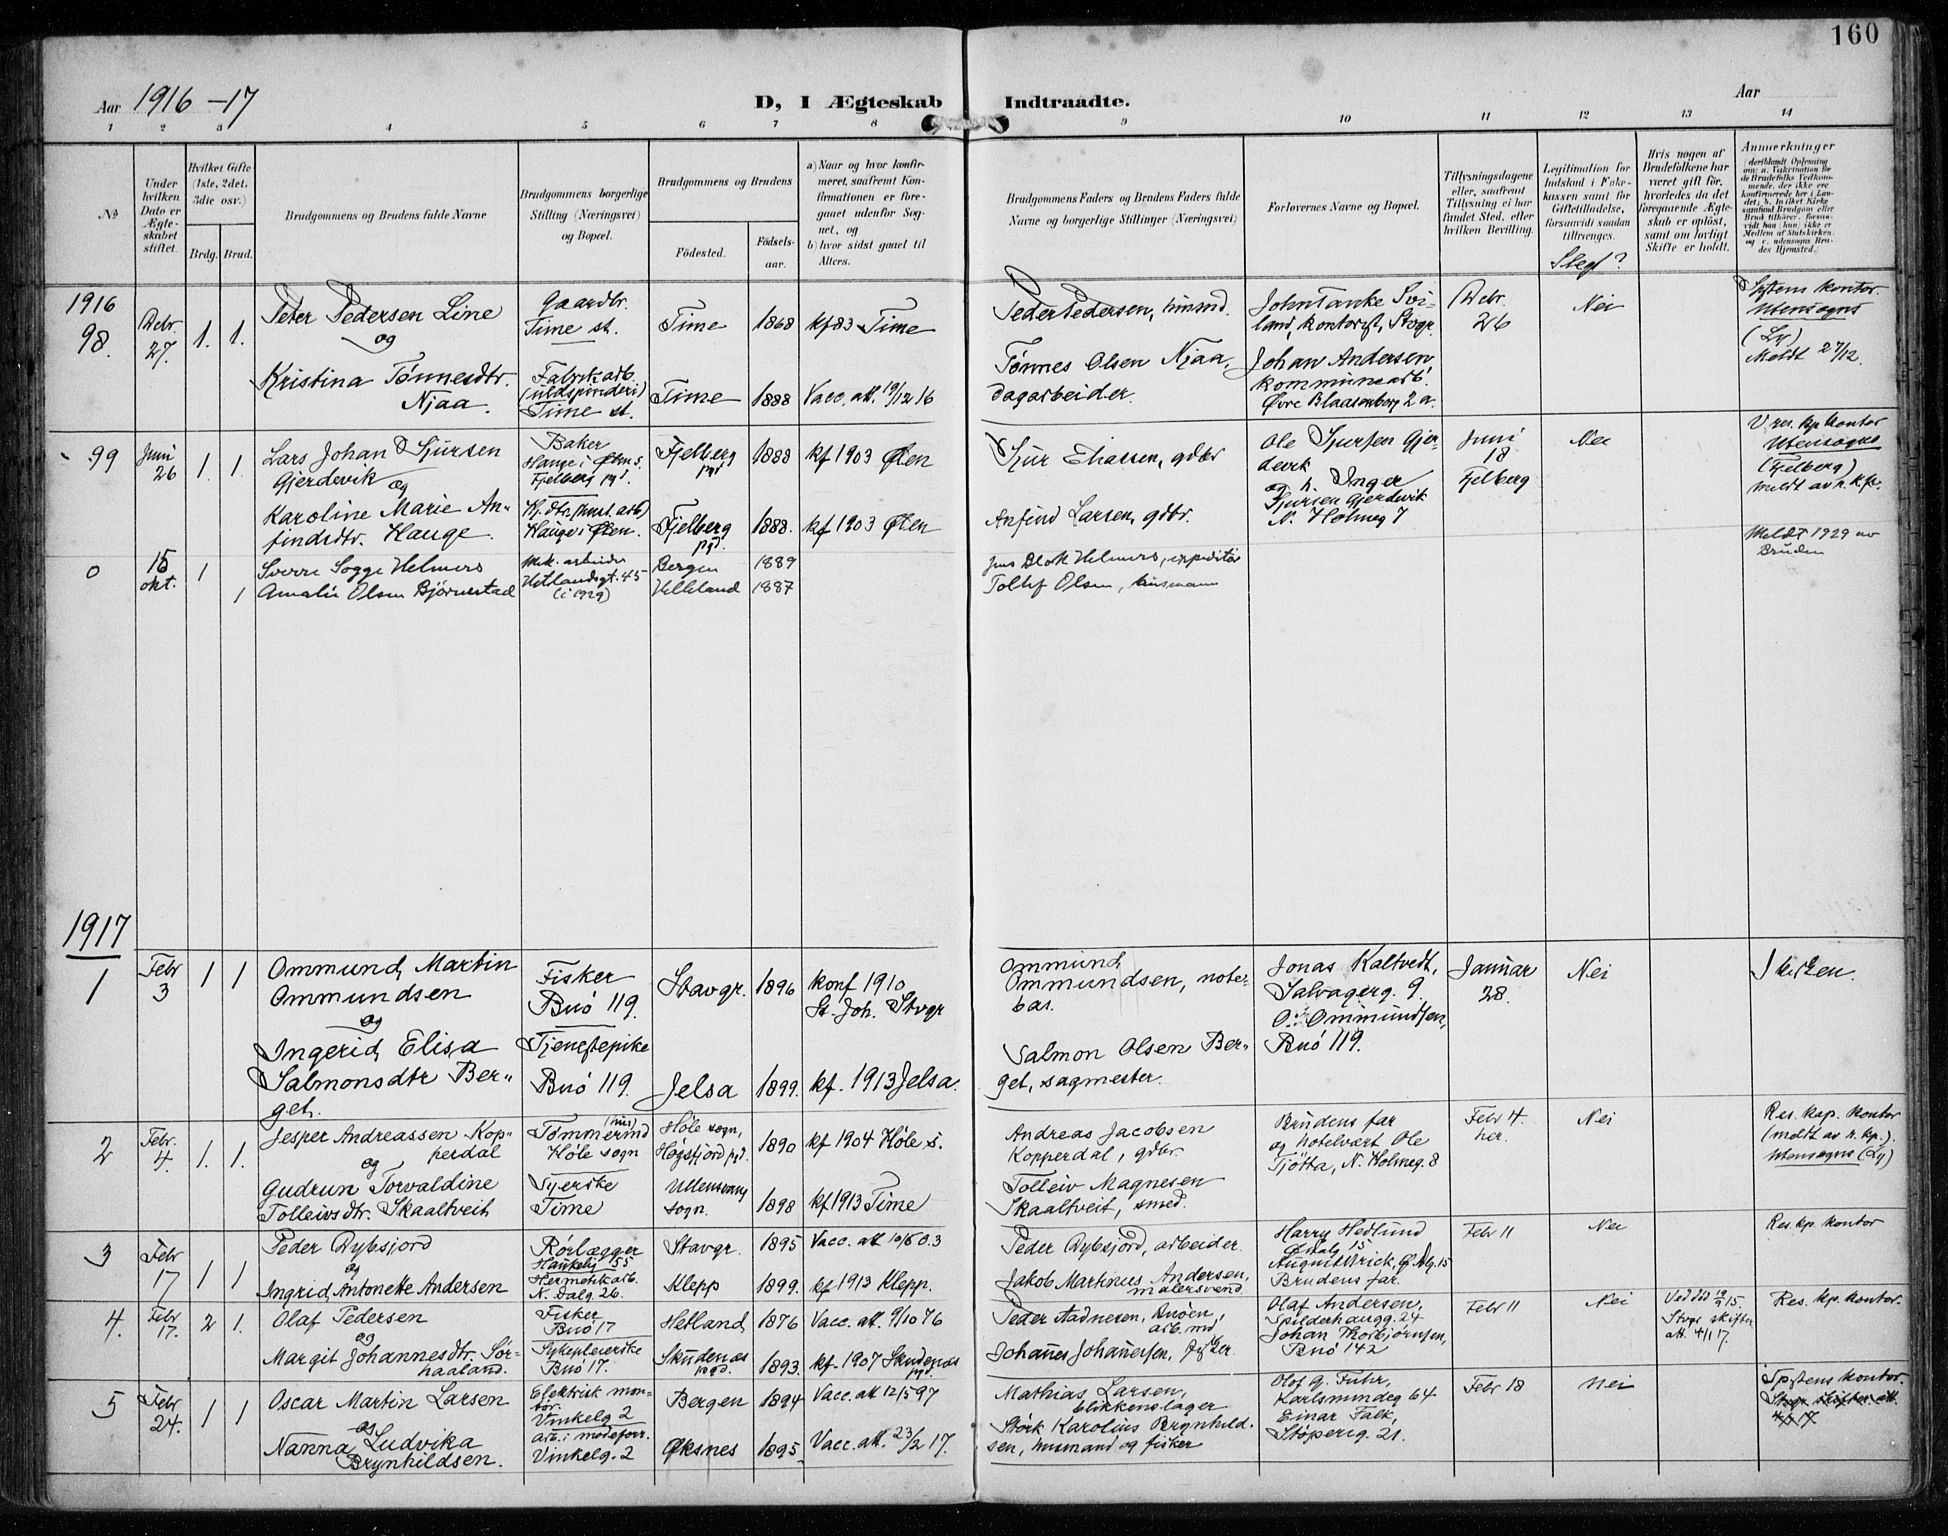 160
Aar 1916-17
D, I Ægteskab Indtraadte.
Aar
1 2 3 4 5 6 7 8 9 10 11 12 13 14
№
Under hvilken Dato er Ægteskabet stiftet.
Hvilket Gifte (1ste, 2det, 3die osv.)
Brdg. Brud.
Brudgommens og Brudens fulde Navne
Brudgommens borgerlige Stilling (Næringsvei) og Bopæl.
Brudgommens og Brudens
Fødested.
Fødselsaar.
a) Naar og hvor konfirmeret, saafremt Konfirmationen er foregaaet udenfor Sognet, og
b) hvor sidst gaaet til Alters.
Brudgommens Faders og Brudens Faders fulde Navne og borgerlige Stillinger (Næringsvei)
Forlovernes Navne og Bopæl.
Tillysningsdagene eller, saafremt Tillysning ei har fundet Sted, efter hvilken Bevilling.
Legitimation for Indskud i Enkekassen samt for Giftetilladelse, forsaavidt saadan tiltrænges.
Slegt?
Hvis nogen af Brudefolkene har været gift før, hvorledes da det foregaaende Ægteskab er opløst, samt om lovligt Skifte er holdt.
Anmerkninger
1916
98.
Debr. 27.
1. 1.
Peter Pedersen Line
og
Kristina Tønnesdtr.
Njaa.
Gaardbr.
Time st.
Fabrikarb.
(uldspinderi)
Time st.
Time 1868 kf 83 Time
Time 1888 Vacc. att. 19/12 16
Peder Pedersen, husmd.
Tønnes Olsen Njaa,
dagarbeider.
John Tanke Svi-
land, kontorist, Stvgr.
Johan Andersen
kommunearb.
Øvre Blaasenborg 2 a.
Debr.
26
Nei
Spstens kontor
Utensogns
(Ly)
Meldt 27/12.
99
Juni
26
1 1
Lars Johan Sjursen
Gjerdevik
og
Karoline Marie An-
findsdtr. Hauge.
Baker
Hauge i Ølen s.
Fjelberg pgd.
Hauge i Ølen.
Fjelberg
pgd
1888 kf 1903 Ølen
Fjelberg
pgd.
1888. kf 1903 Ølen
Sjur Eliassen, gdbr
Anfind Larsen, gdbr.
Ole Sjursen Gjer-
devik
og h. Inger
Sjursen Gjerdevik
N. Holmeg 7
Juni
18
Fjelberg
Nei
V. res. kp. kontor
Utensogns
(Fjelberg)
meldt av h. kp.
0
15
okt.
1
1
Sverre Sogge Helmers
Amalie Olsen Bjørnestad
Mek. arbeider
Hetlandsgt. 45
(i 1929)
Bergen 1889
Helleland 1887
Jens Blok Helmers, expeditør
Tollef Olsen, husmann
Meldt 1929 av
Bruden
1917
1
Febr
3
1 1
Ommund Martin
Ommundsen
og
Ingerid Elisa
Salmonsdtr Ber-
get.
Fisker
Buø 119.
Tjenestepike
Buø 119.
Stavgr. 1896 konf 1910
St. Joh. Stvgr
Jelsa 1899. kf. 1913 Jelsa.
Ommund
Ommundsen, note-
bas.
Salmon Olsen Ber-
get, sagmester.
Jonas Kaltvedt,
Salvagerg. 9.
O. Ommundsen,
Buø 119.
Januar
28.
Nei
I kirken.
2
Febr.
4.
1. 1.
Jesper Andreassen Kop-
perdal
og
Gudrun Torvaldine
Tolleivsdtr. Skaaltveit
Tømmermd
Høle sogn
Syerske
Time
Høle sogn,
Høgsfjord pgd. 1890 kf 1904 Høle s.
Ullensvang
sogn. 1898 kf 1913 Time
Andreas Jacobsen
Kopperdal, gdbr.
Tolleiv Magnesen
Skaaltveit, smed.
Brudens far
og hotelvært Ole
Tjøtta, N. Holmeg. 8
Febr 4.
her.
Nei
Res. kap. kontor
(meldt av h. kp.).
Utensogns (Ly)
3
Febr
17
1 1
Peder Dybsjord
og
Ingrid Antonette Andersen
Rørlægger
Haukelig 155
Hermetikarb.
N. Dalg. 26.
Stavgr. 1895 Vacc. att 10/6 03
Klepp 1899. kf 1913 Klepp.
Peder Dybsjord, arbeider.
Jakob Martinus Andersen,
malersvend.
Harry Hedlund
Ø. Dalg 15
Brudens far.
Febr 11
Nei
Res. kp. kontor
4.
Febr
17.
2 1.
Olaf Pedersen
og
Margit Johannesdtr. Sør-
haaland.
Fisker
Buø 17
Sykepleierske
Buø 17.
Hetland 1876 Vacc. att. 9/10 76
Skudenæs
pgd. 1893. kf. 1907 Skudenæs
pgd.
Peder Aadnesen, Buøen,
arb. md.
Johannes Johannesen, fisker
Olaf Andersen,
Spilderhaugg. 24
Johan Thorbjørnsen,
Buø 142
Febr 11
Nei
Stvgr skifter
att. 4/1 17.
Res. kp. kontor.
5
Febr
24.
1 1
Oscar Martin Larsen
og
Nanna Ludvika
Brynhildsen.
Elektrisk mon-
tør.
Vinkelg. 2
arb. i modeforr.
Vinkelg. 2
Bergen 1894 Vacc. att 12/5 97
Øksnes 1895. Vacc. att. 23/2 17.
Mathias Larsen,
blikkenslager
Størk Karolius Brynhild-
sen, husmand og fisker
Olof G. Fuhr,
Karlsmindeg 64
Einar Falk,
Støperig. 21.
Febr 18
Nei
Spstens kontor.
Stvgr skifter att.
4/1 17.